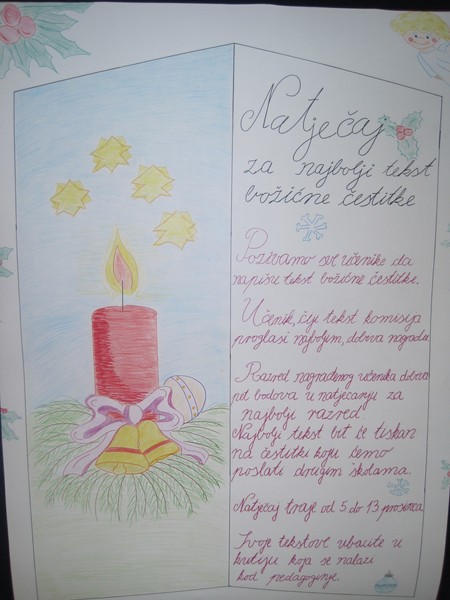 Natječaj
za najbolji tekst
božićne čestitke
Pozivamo sve učenike da
napišu tekst božićne čestitke.
Učenik, čiji tekst komisija
proglasi najboljim, dobiva nagradu.
Razred nagrađenog učenika dobiva
pet bodova u natjecanju za
"najbolji razred"
Najbolji tekst bit će tiskan
na čestitki koju ćemo
poslati drugim školama.
Natječaj traje od 5 do 13 prosinca
Svoje tekstove ubacite u
kutiju koja se nalazi
kod pedagoginje.